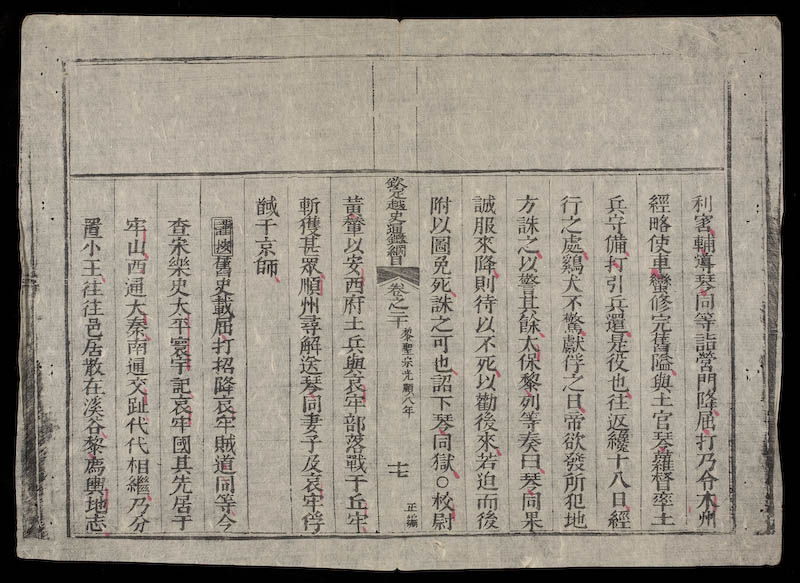 利害輔導琴同等詣營門降屈打乃令木州
經略使車蠻修完舊隘與土官琴羅督率土
兵守備打引兵還是役也往返纔十八日經
行之處鷄犬不驚獻俘之日帝欲發所犯地
方誅之以警其餘太保黎列等奏曰琴同果
誠服來降則待以不死以勸後來若迫而後
附以圖免死誅之可也詔下琴同獄○校尉
欽定越史通鑑綱目 卷之二十 黎聖宗光順八年 十七 正編
黃肇以安西府土兵與哀牢部落戰于丘牢
斬獲甚眾順州尋解送琴同妻子及哀牢俘
馘于京師
謹按舊史載屈打招降哀牢賊道同等今
查宋樂史太平寰宇記哀牢國其先居于
牢山西通大秦南通交趾代代相繼乃分
置小王往往邑居散在溪谷黎廌輿地志